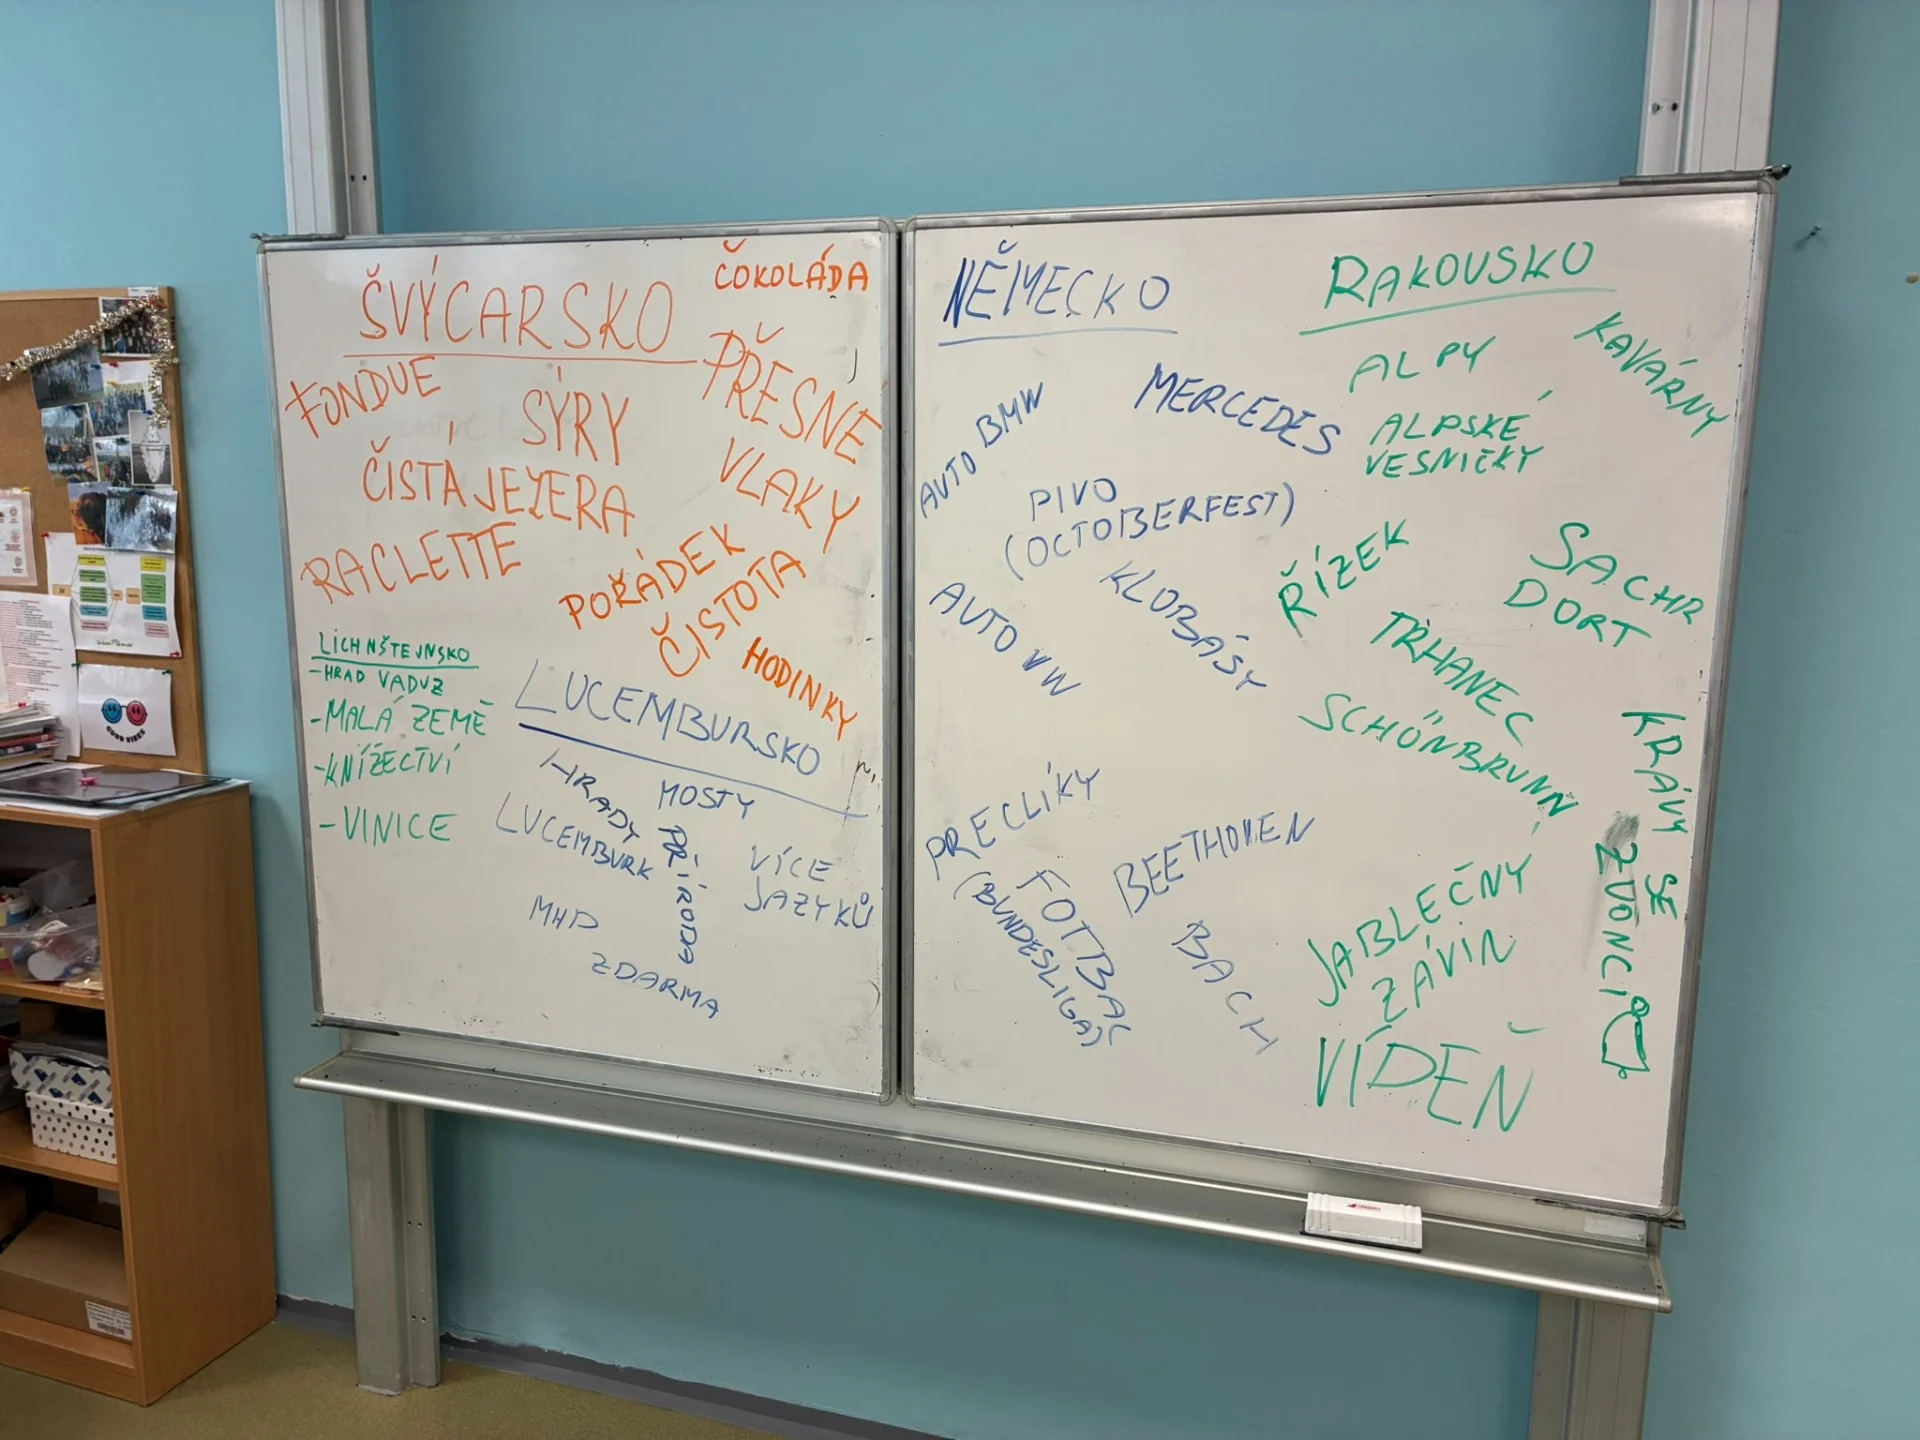 ŠVÝCARSKO
ČOKOLÁDA
FONDUE
SÝRY
PŘESNÉ
VLAKY
ČISTÁ JEZERA
RACLETTE
POŘÁDEK
ČISTOTA
HODINKY
LICHNŠTEJNSKO
-HRAD VADUZ
-MALÁ ZEMĚ
-KNÍŽECTVÍ
-VINICE
LUCEMBURSKO
HRADY
MOSTY
LUCEMBURK
PŘÍRODA
VÍCE
JAZYKŮ
MHD
ZDARMA
NĚMECKO
AUTO BMW
MERCEDES
PIVO
(OCTOBERFEST)
KLOBÁSY
AUTO VW
PRECLÍKY
FOTBAL
(BUNDESLIGA)
BEETHOVEN
BACH
RAKOUSKO
ALPY
KAVÁRNY
ALPSKÉ
VESNIČKY
ŘÍZEK
SACHR
DORT
TRHANEC
SCHÖNBRUNN
KRÁVY SE
ZVONCI
JABLEČNÝ
ZÁVIN
VÍDEŇ
GOOD VIBES